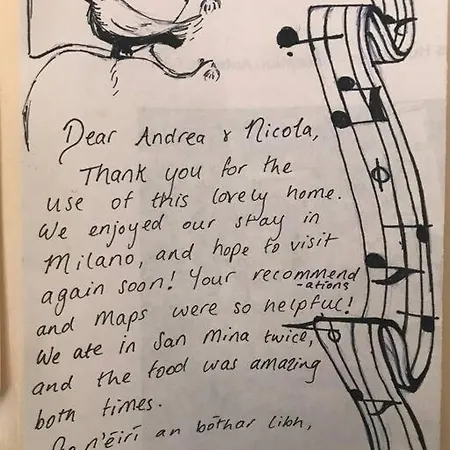 Dear Andrea & Nicola,
Thank you for the
use of this lovely home.
We enjoyed our stay in
Milano, and hope to visit
again soon! Your recommend
-ations
and maps were so helpful!
We ate in San Mina twice,
and the food was amazing
both times.
Go n'éirí an bóthar libh,